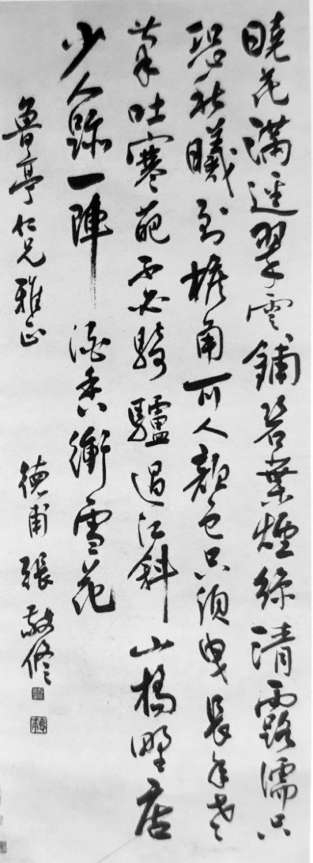 曉花滿逕翠雲鋪箬葉煙絲清露濡只
恐秋曦到檐角可人顏色只須臾長年老
筆吐寒葩不必騎驢過江斜山橋野店
少人蹤一陣酒香衝雪花
魯亭仁兄雅正
德甫張敬修